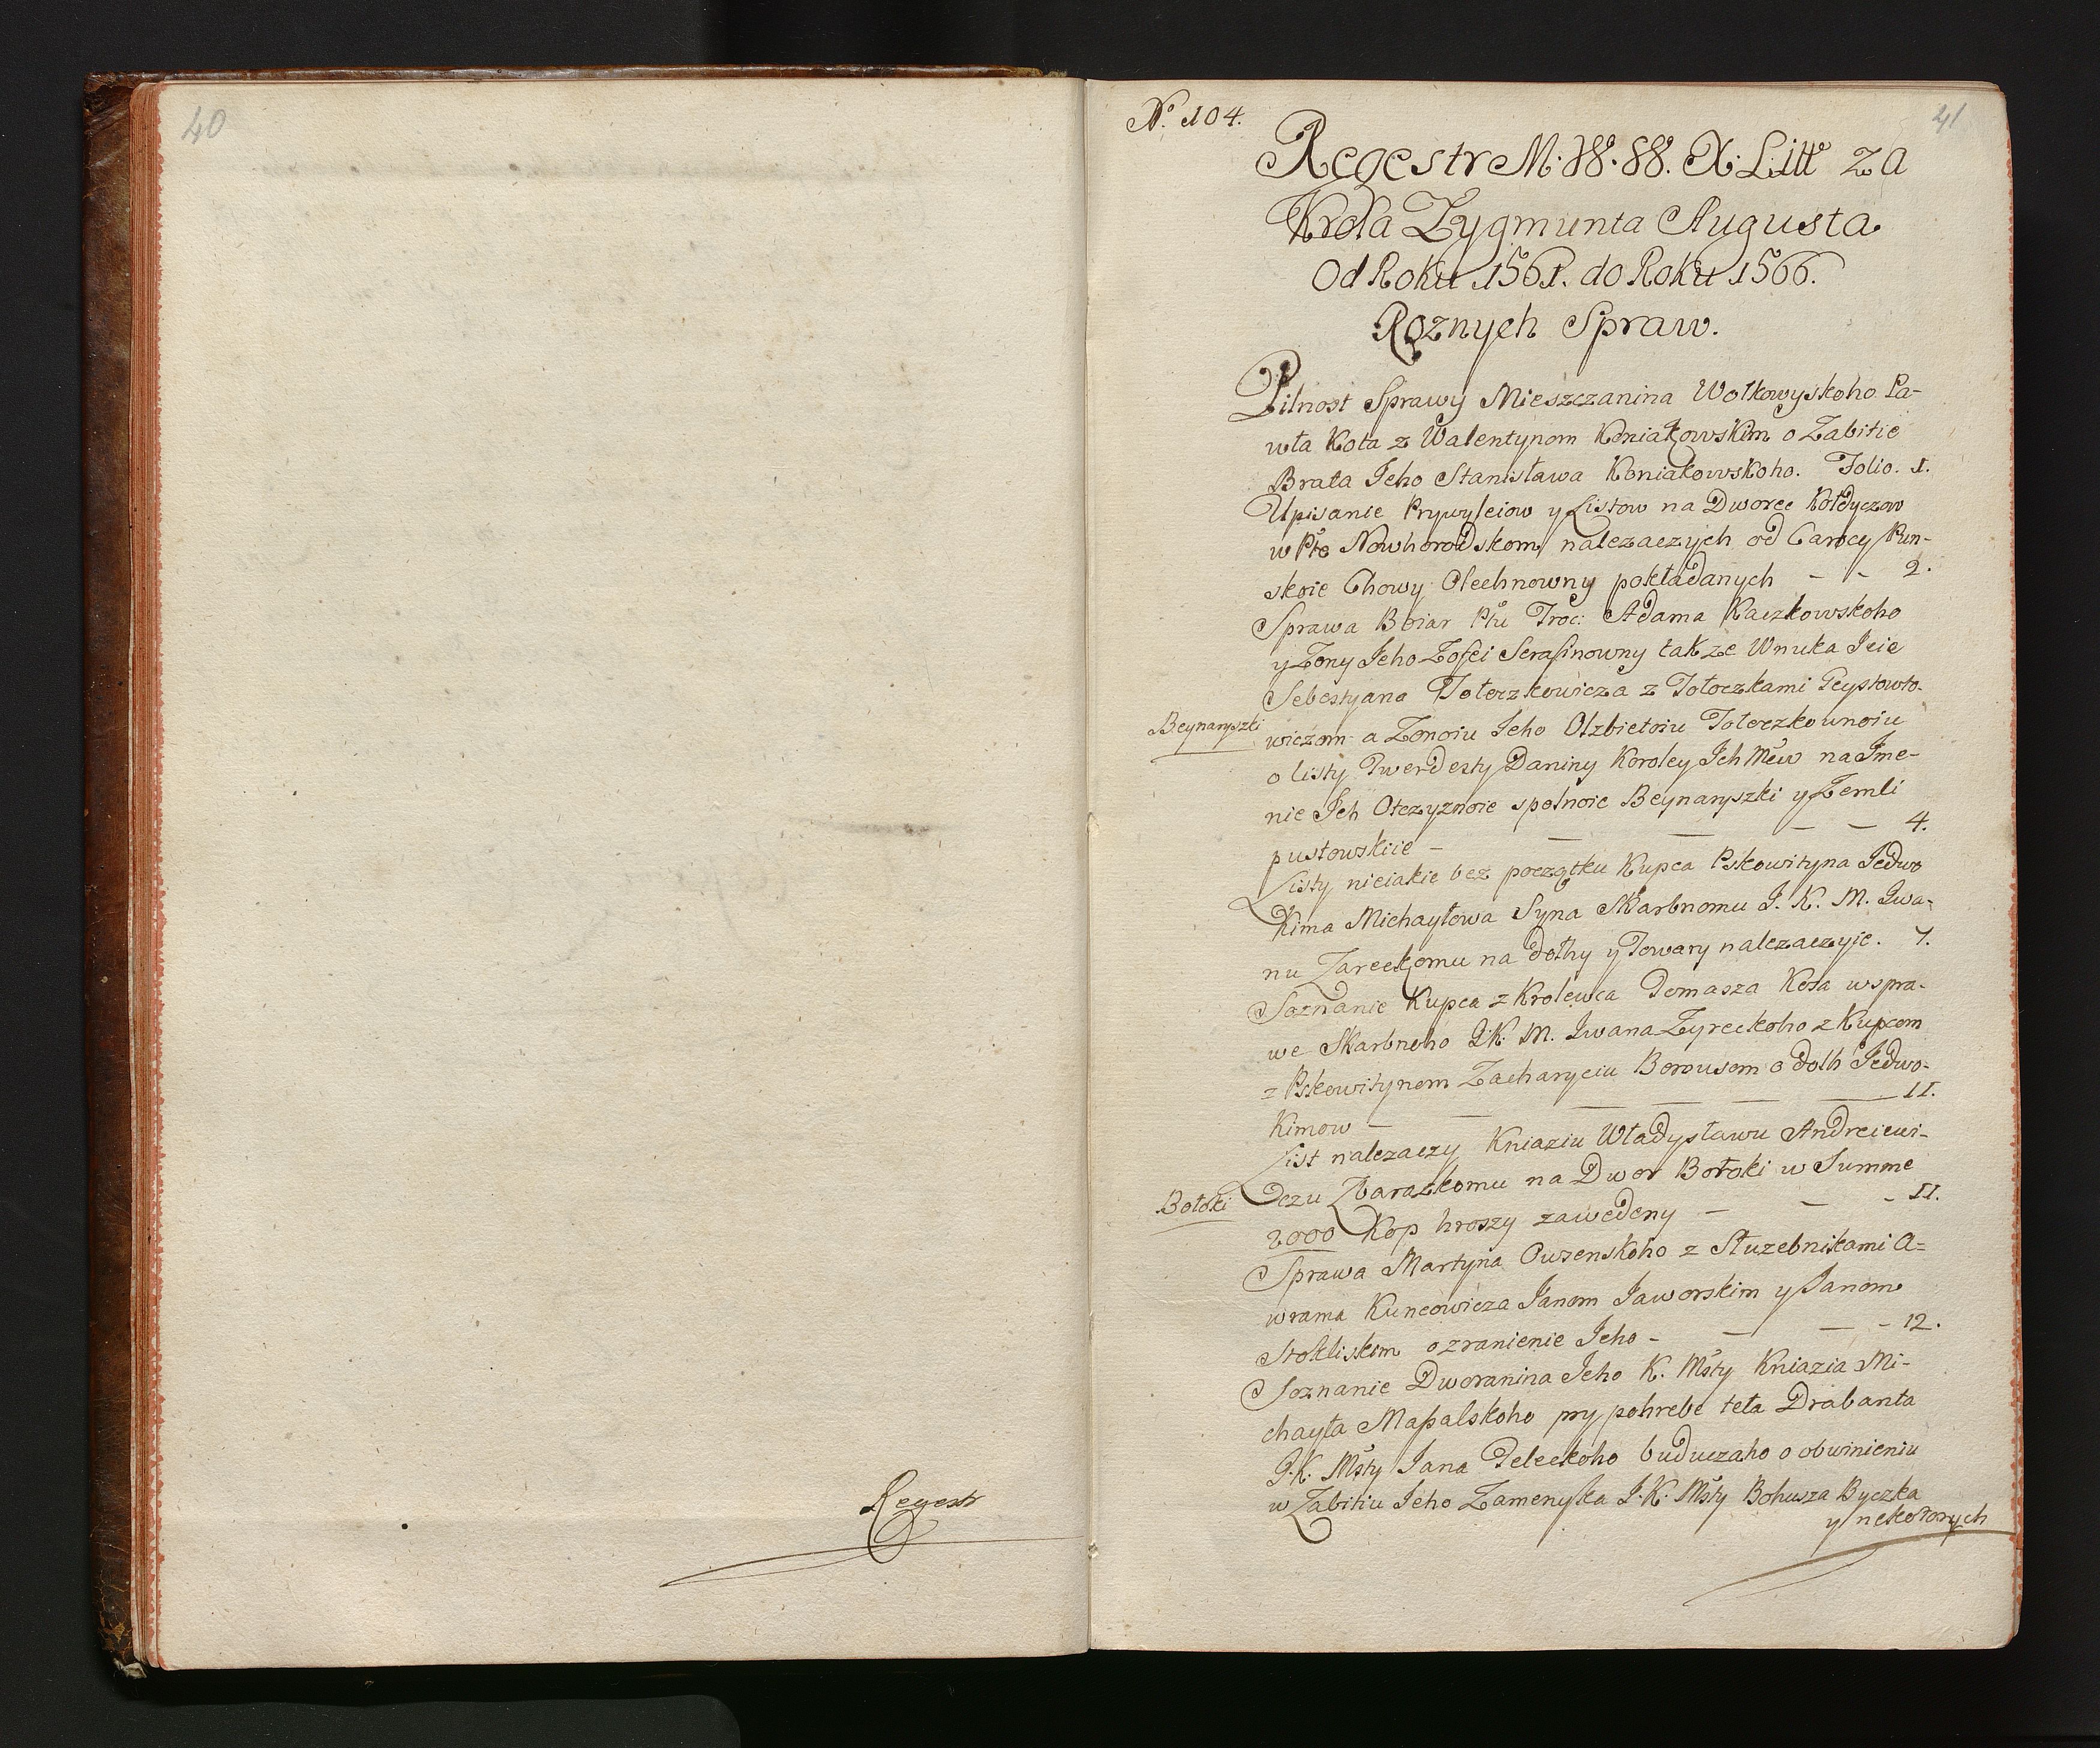 40
Regestr
41
No. 104.
Regestr M. 78. 88. X. Litt za
Krola Zygmunta Augusta
Od Roku 1561. do Roku 1566.
Roznych Spraw.
Pilnost Sprawy Mieszczanina Wołkowyskoho Pa-
wła Kota z Walentynom Koniakowskim o Zabitie
Brata Jeho Stanisława Koniakowskoho. Folio. 1.
Upisanie Prywyleiow y Listow na Dworec Kołdyczow
w Pte Nowhorodskom nalezaczych od Carocy Pun-
skoie Chowy Olechnowny pokładanych - - 2.
Sprawa Boiar Ptu Troc: Adama Kaczkowskoho
y Zony Jeho Zofei Serafinowny tak ze Wnuka Jeie
Sebestyana Tołoczkowicza z Tołoczkami Geysztowto-
Beynaryszki
wiczom a Zonoiu Jeho Olzbietoiu Tołoczkownoiu
o listy Twerdosty Daniny Koroley Ich Mcw na Jme-
nie Ich Otczyznoie spolnoie Beynaryszki y Zemli
pustowskiie - - - - - 4.
Listy nieiakie bez początku Kupca Pskowityna Jedwo
kima Michayłowa Syna Skarbnomu J. K. M. Jwa-
nu Zareckomu na dołhy y Towary nalezaczyie. 7.
Soznanie Kupca z Krolewca Tomasza Kosa w spra-
we Skarbnoho J. K. M. Jwana Zyreckoho z Kupcom
z Pskowitynom Zacharyeiu Borousom o dolh Jedwo-
kimow - - - - - - 11.
List nalezaczy Kniaziu Władysławu Andreiewi-
Bołoki
czu Zbarazkomu na Dwor Bołoki w Summe
2000 Kop hroszy zawedeny - - - 11.
Sprawa Martyna Owsenskoho z Słuzebnikami A=
wrama Kuncowicza Janom Jaworskim y Janom
Stokliskom o zranienie Jeho - - - - 12.
Soznanie Dworanina Jeho K. Msty Kniazia Mi-
chayła Massalskoho pry pohrebe teła Drabanta
J. K. Msty Jana Teleckoho buduczaho o obwinieniu
w Zabitiu Jeho Zamenyka J. K. Msty Bohusza Byczka
y nekotorych